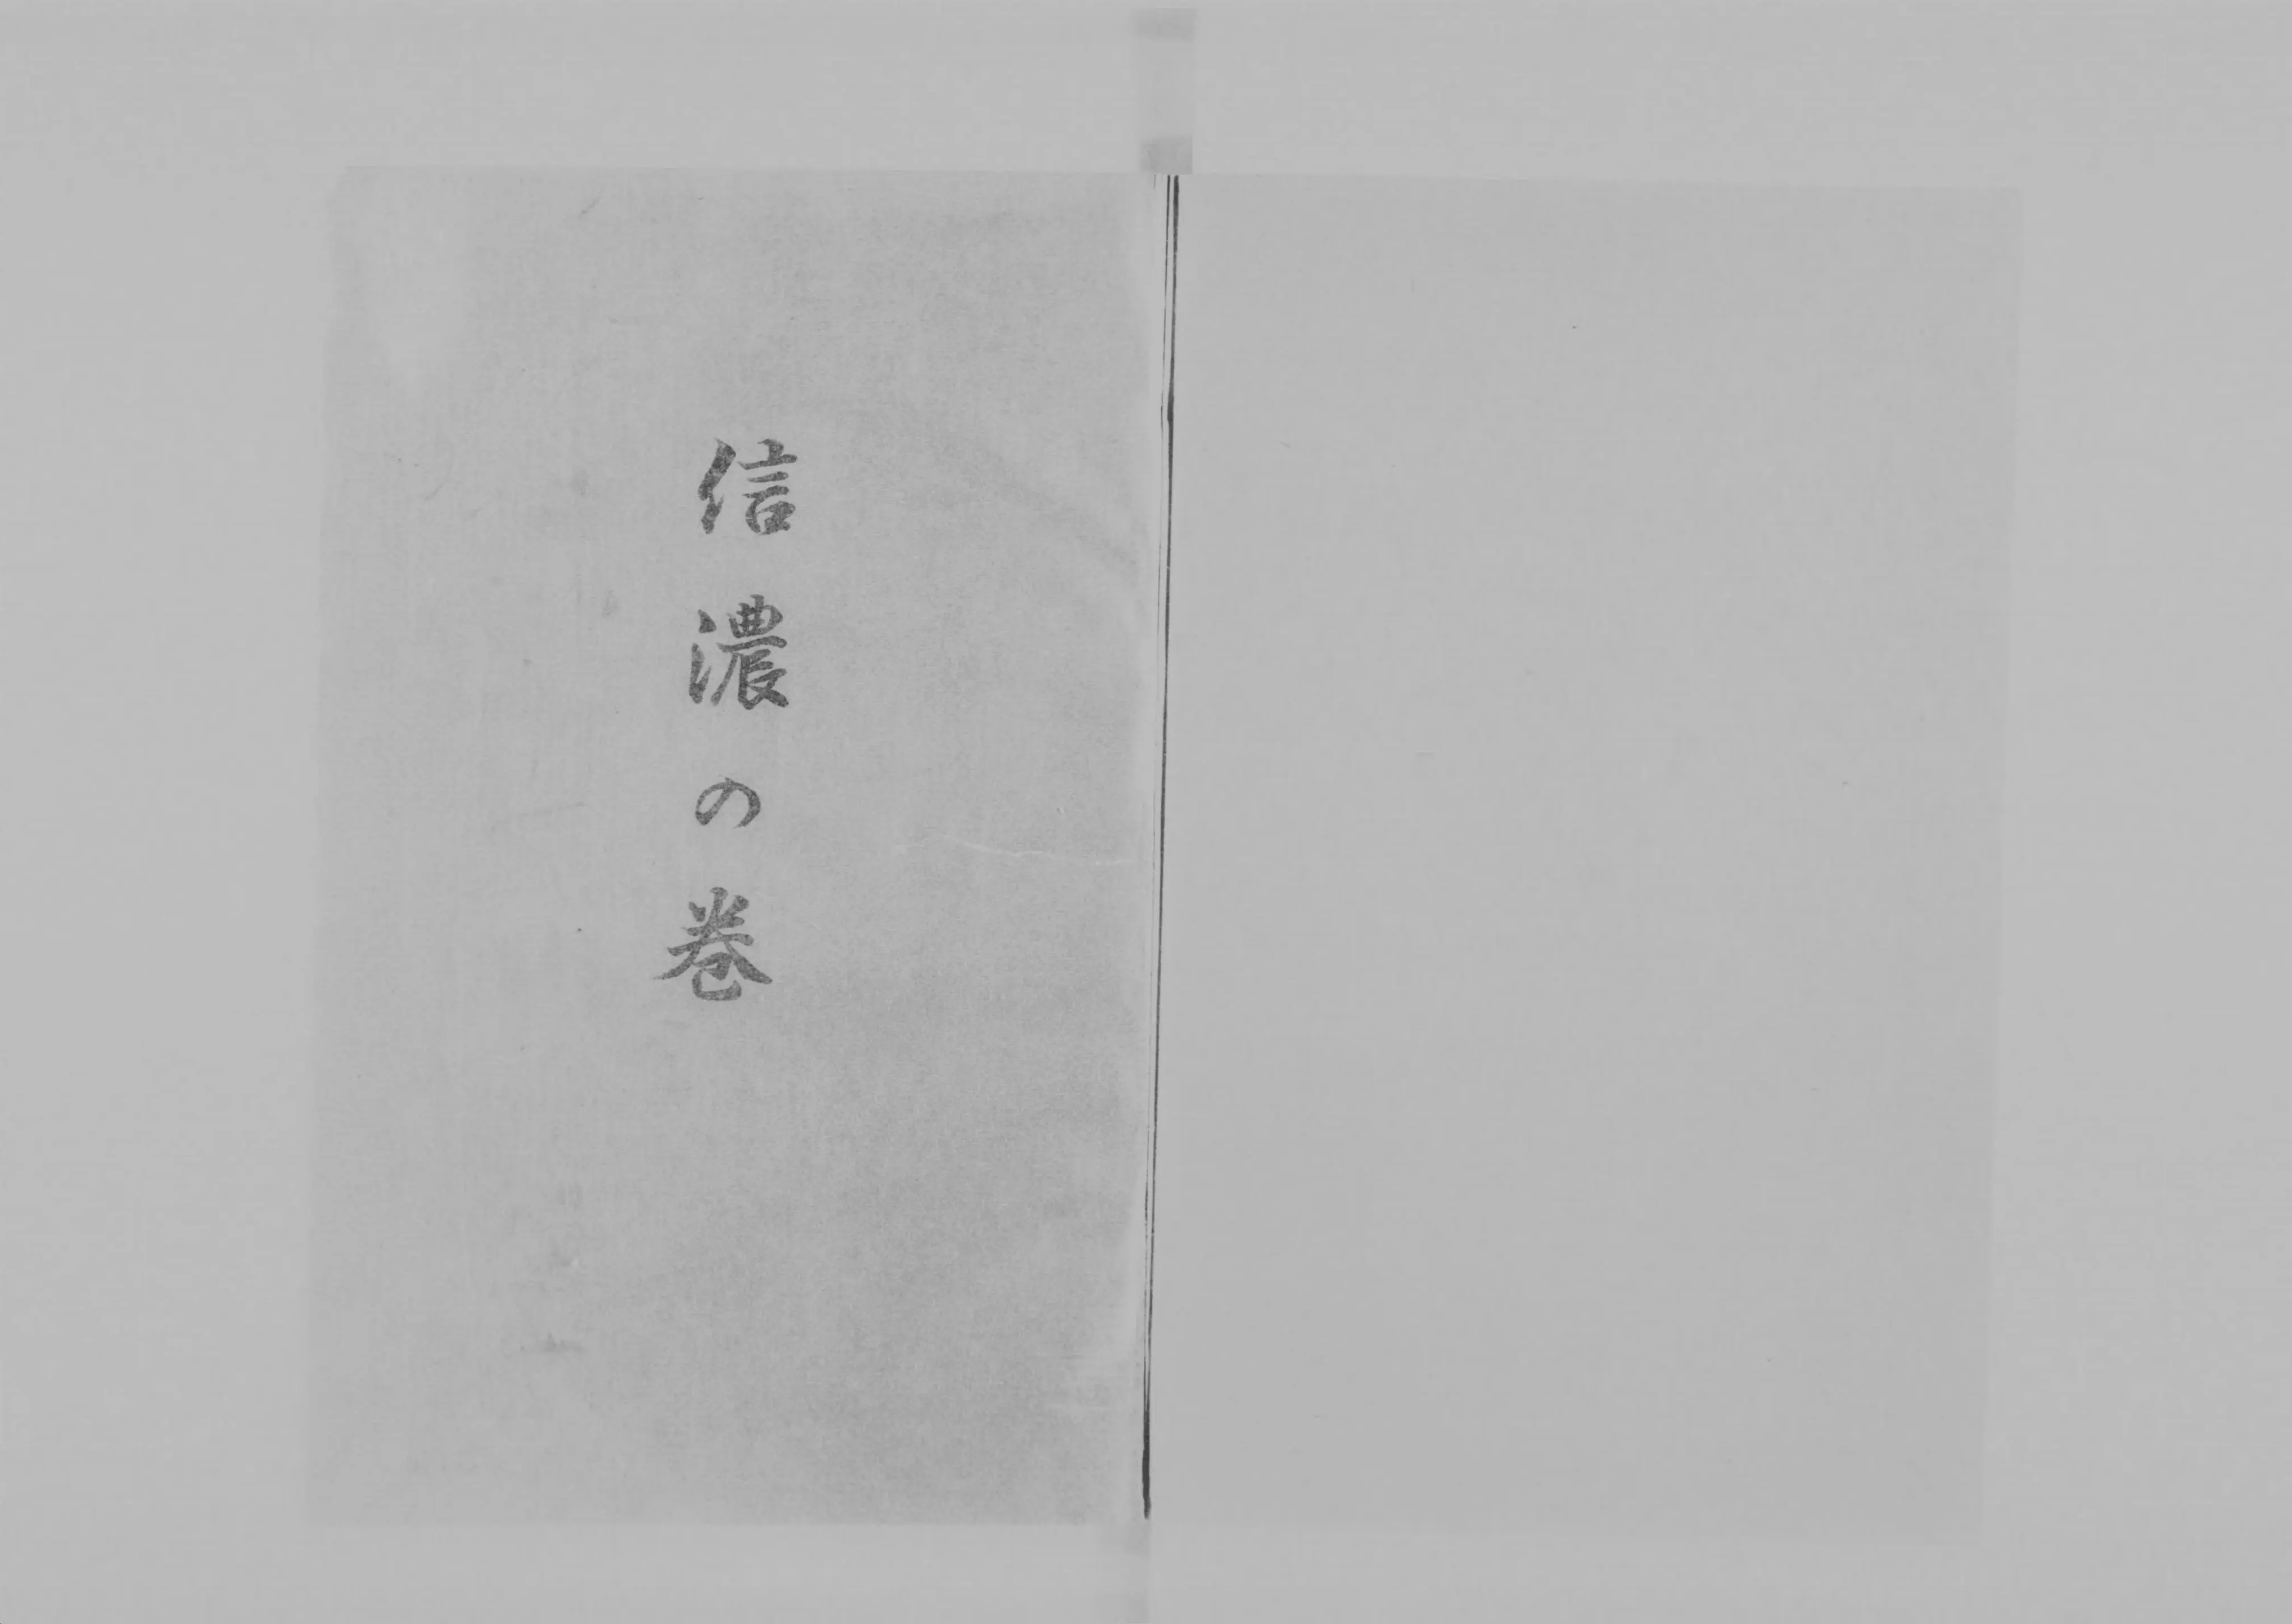 信濃の巻